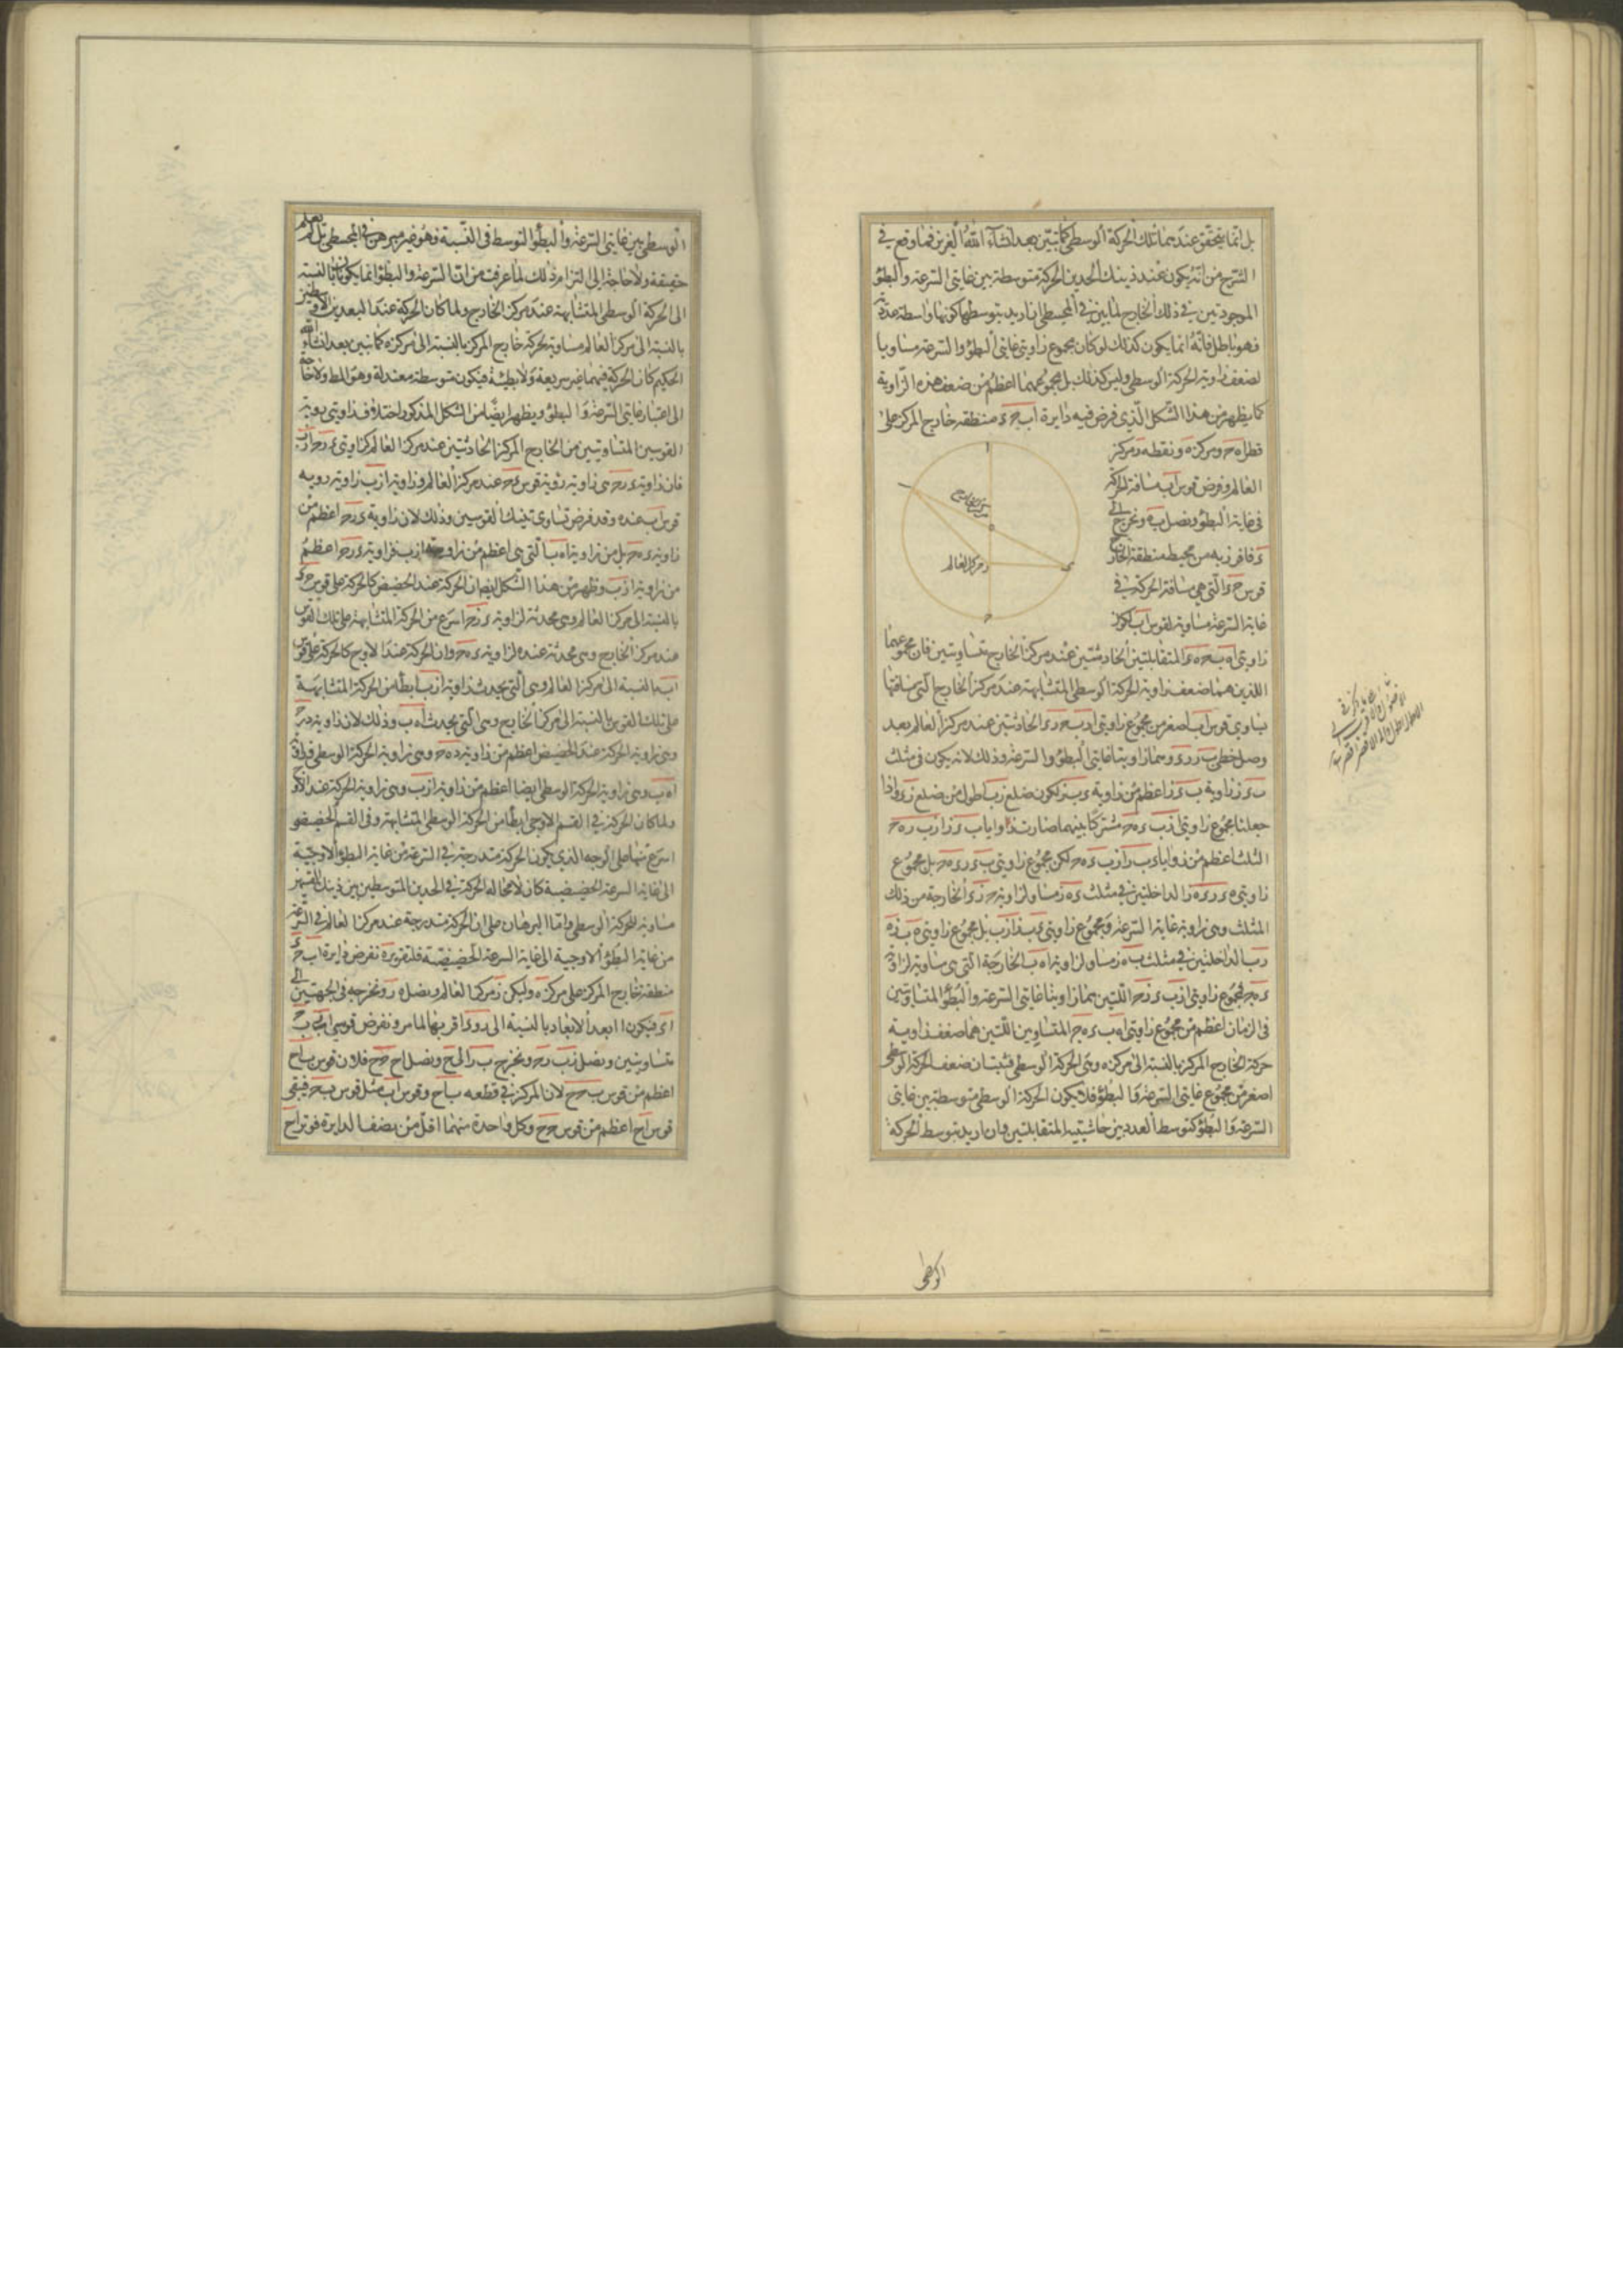 بل انما يتحقق عندهما تلك الحركة الوسطى كما تبين بعد انشاء الله العزيز فما وقع في
الشرح من انه يكون عند ذينك الحدين الحركة متوسطة بين غايتي السرعة والبطؤ
الموجودتين في ذلك الخارج لما بين في المجسطي ان اريد بتوسطها كونها واسطة عددية
فهو باطل فانه انما يكون كذلك لو كان مجموع زاويتي غايتي البطؤ والسرعة مساويا
لضعف زاوية الحركة الوسطى وليس كذلك بل مجموعهما اعظم من ضعف هذه الزاوية
كما يظهر من هذا الشكل الذي فرض فيه دايرة اب حء منطقة خارج المركز على
قطر اهح ومركزه ه ونقطه ز مركز
العالم وفرض قوس اب مسافة الحركة
في غاية البطؤ ونصل به ونخرج الى
ء فافرز به من محيط منطقة الخارج
قوس حء التي هي مسافة الحركة في
غاية السرعة مساوية لقوس اب لكون
مركز العالم
زاويتي اه ب حه ء المتقابلتين الحادثتين عند مركز الخارج متساويتين فان مجموعهما
اللذين هما ضعف زاوية الحركة الوسطى المتشابهة عند مركز الخارج التي مسافتها
يساوي قوس اب اصغر من مجموع زاويتي ازب حزء الحادثتين عند مركز العالم بعد
وصل خطي ب ز زء وهما زاويتا غايتي البطؤ والسرعة وذلك لانه يكون في مثلث
بءز زاوية بءز اعظم من زاوية ءبز لكون ضلع زب اطول من ضلع زء واذا
جعلنا مجموع زاويتي ازب ءهح مشتركا بينهما صارت زوايا بءز ازب ءهح
الثلث اعظم من زوايا ءبز ازب ءهح لكن مجموع زاويتي بءز ءهح بل مجموع
زاويتي هءز ءهز الداخلتين في مثلث ءهز مساو لزاوية حزء الخارجة من ذلك
المثلث وهي زاوية غاية السرعة ومجموع زاويتي ءبز ازب بل مجموع زاويتي هبز ه
زب الداخلتين في مثلث بهز مساو لزاوية اهب الخارجة التي هي مساوية لزاوية
ءهح فمجموع زاويتي ازب ءزح اللتين هما زاويتا غايتي السرعة والبطؤ المتساويتين
في الزمان اعظم من مجموع زاويتي اهب ءهح المتساويين اللتين هما ضعف زاوية
حركة الخارج المركز بالنسبة الى مركزه وهي الحركة الوسطى فثبت ان ضعف الحركة الوسطى
اصغر من مجموع غايتي السرعة والبطؤ فلا يكون الحركة الوسطى متوسطة بين غايتي
السرعة والبطؤ كتوسط العدد بين حاشيتيه المتقابلتين وان اريد توسط الحركة
الوسطى
الوسطى بين غايتي السرعة والبطؤ التوسط في النسبة وهو غير مبرهن في المجسطي بل لم يعلم
حقيقته ولا حاجة الى التزام ذلك لما عرفت من ان السرعة والبطؤ انما يكونان بالنسبة
الى الحركة الوسطى المتشابهة عند مركز الخارج ولما كان الحركة عند البعدين الاوسطين
بالنسبة الى مركز العالم مساوية لحركة خارج المركز بالنسبة الى مركزه كما تبين بعد انشاء الله
الحكيم كان الحركة فيهما غير سريعة ولا بطيئة فيكون متوسطة معتدلة وهو المط ولا حاجة
الى اعتبار غايتي السرعة والبطؤ ويظهر ايضا من الشكل المذكور اختلاف زاويتي رؤية
القوسين المتساويتين من الخارج المركز الحادثتين عند مركز العالم كزاويتي ءزح ازب
فان زاوية ءزح هي زاوية رؤية قوس ءح عند مركز العالم وزاوية ازب زاوية رويه
قوس اب عنده وقد فرض تساوي تينك القوسين وذلك لان زاوية ءزح اعظم من
زاوية ءهح بل من زاوية اهب التي هي اعظم من زاوية ازب فزاوية ءزح اعظم
من زاوية ازب وظهر من هذا الشكل ايضا ان الحركة عند الحضيض كالحركة على قوس حء
بالنسبة الى مركز العالم وهي محدثة لزاوية ءزح اسرع من الحركة المتشابهة على تلك القوس
عند مركز الخارج وهي محدثة عنده لزاوية ءهح وان الحركة عند الاوج كالحركة على قوس
اب بالنسبة الى مركز العالم وهي التي يحدث زاوية ازب ابطا من الحركة المتشابهة
على تلك القوس بالنسبة الى مركز الخارج وهي التي يحدث اهب وذلك لان زاوية ءزح
وهي زاوية الحركة عند الحضيض اعظم من زاوية ءهح وهي زاوية الحركة الوسطى وزاوية
اهب وهي زاوية الحركة الوسطى ايضا اعظم من زاوية ازب وهي زاوية الحركة عند الاوج
ولما كان الحركة في القسم الاوجي ابطأ من الحركة الوسطى المتشابهة وفي القسم الحضيضي
اسرع منها على الوجه الذي يكون الحركة متدرجة في السرعة من غاية البطؤ الاوجية
الى غاية السرعة الحضيضية كان لا محالة الحركة في الحدين المتوسطين بين ذينك القسمين
مساوية للحركة الوسطى واما البرهان على ان الحركة متدرجة عند مركز العالم في السرعة
من غاية البطؤ الاوجية الى غاية السرعة الحضيضية فلتقريره نفرض دايرة اب حء
منطقة خارج المركز على مركزه ه وليكن ز مركز العالم ونصل ه ز ونخرجه في الجهتين الى
اء فيكون ا ابعد الابعاد بالنسبة الى ز وء اقربها لما مر ونفرض قوسي اب بح
متساويتين ونصل زب زح ونخرج بز الى ح ونصل اح حح فلان قوس باح
اعظم من قوس بحح لان المركز في قطعه باح وقوس اب مثل قوس بح فيبقى
قوس اح اعظم من قوس حح وكل واحدة منهما اقل من نصف الدايرة فوتر اح